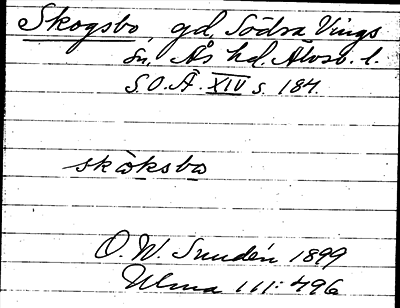 Skogsbo, gd, Södra Vings
sn, Ås hd. Älvsb. l.
S.O.Ä. XIV s. 184.
skòksbo
O. W. Sundén 1899
Ulma 111:496